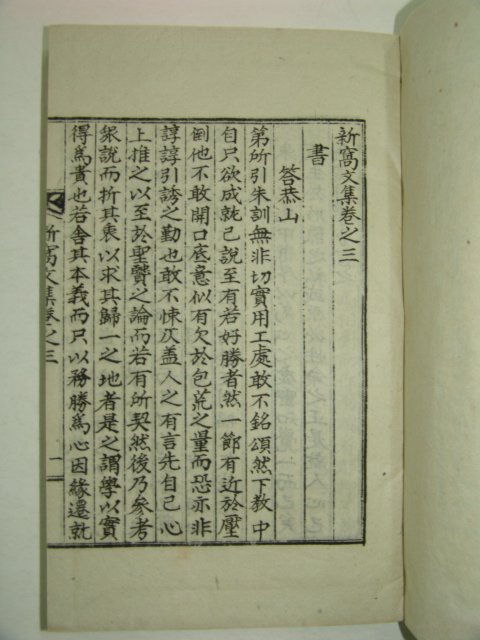 新窩文集卷之三
書
答恭山
第所引朱訓無非切實用工處敢不銘頌然下教中
自只欲成就己說至有若好勝者然一節有近於壓
倒他不敢開口底意似有欠於包荒之量而恐亦非
諄諄引誘之勤也敢不悚仄盖人之有言先自己心
上推之以至於聖賢之論而若有所契然後乃參考
衆說而折其衷以求其歸一之地者是之謂學以實
得爲貴也若舍其本義而只以務勝爲心因緣遷就
新窩文集卷之三
一